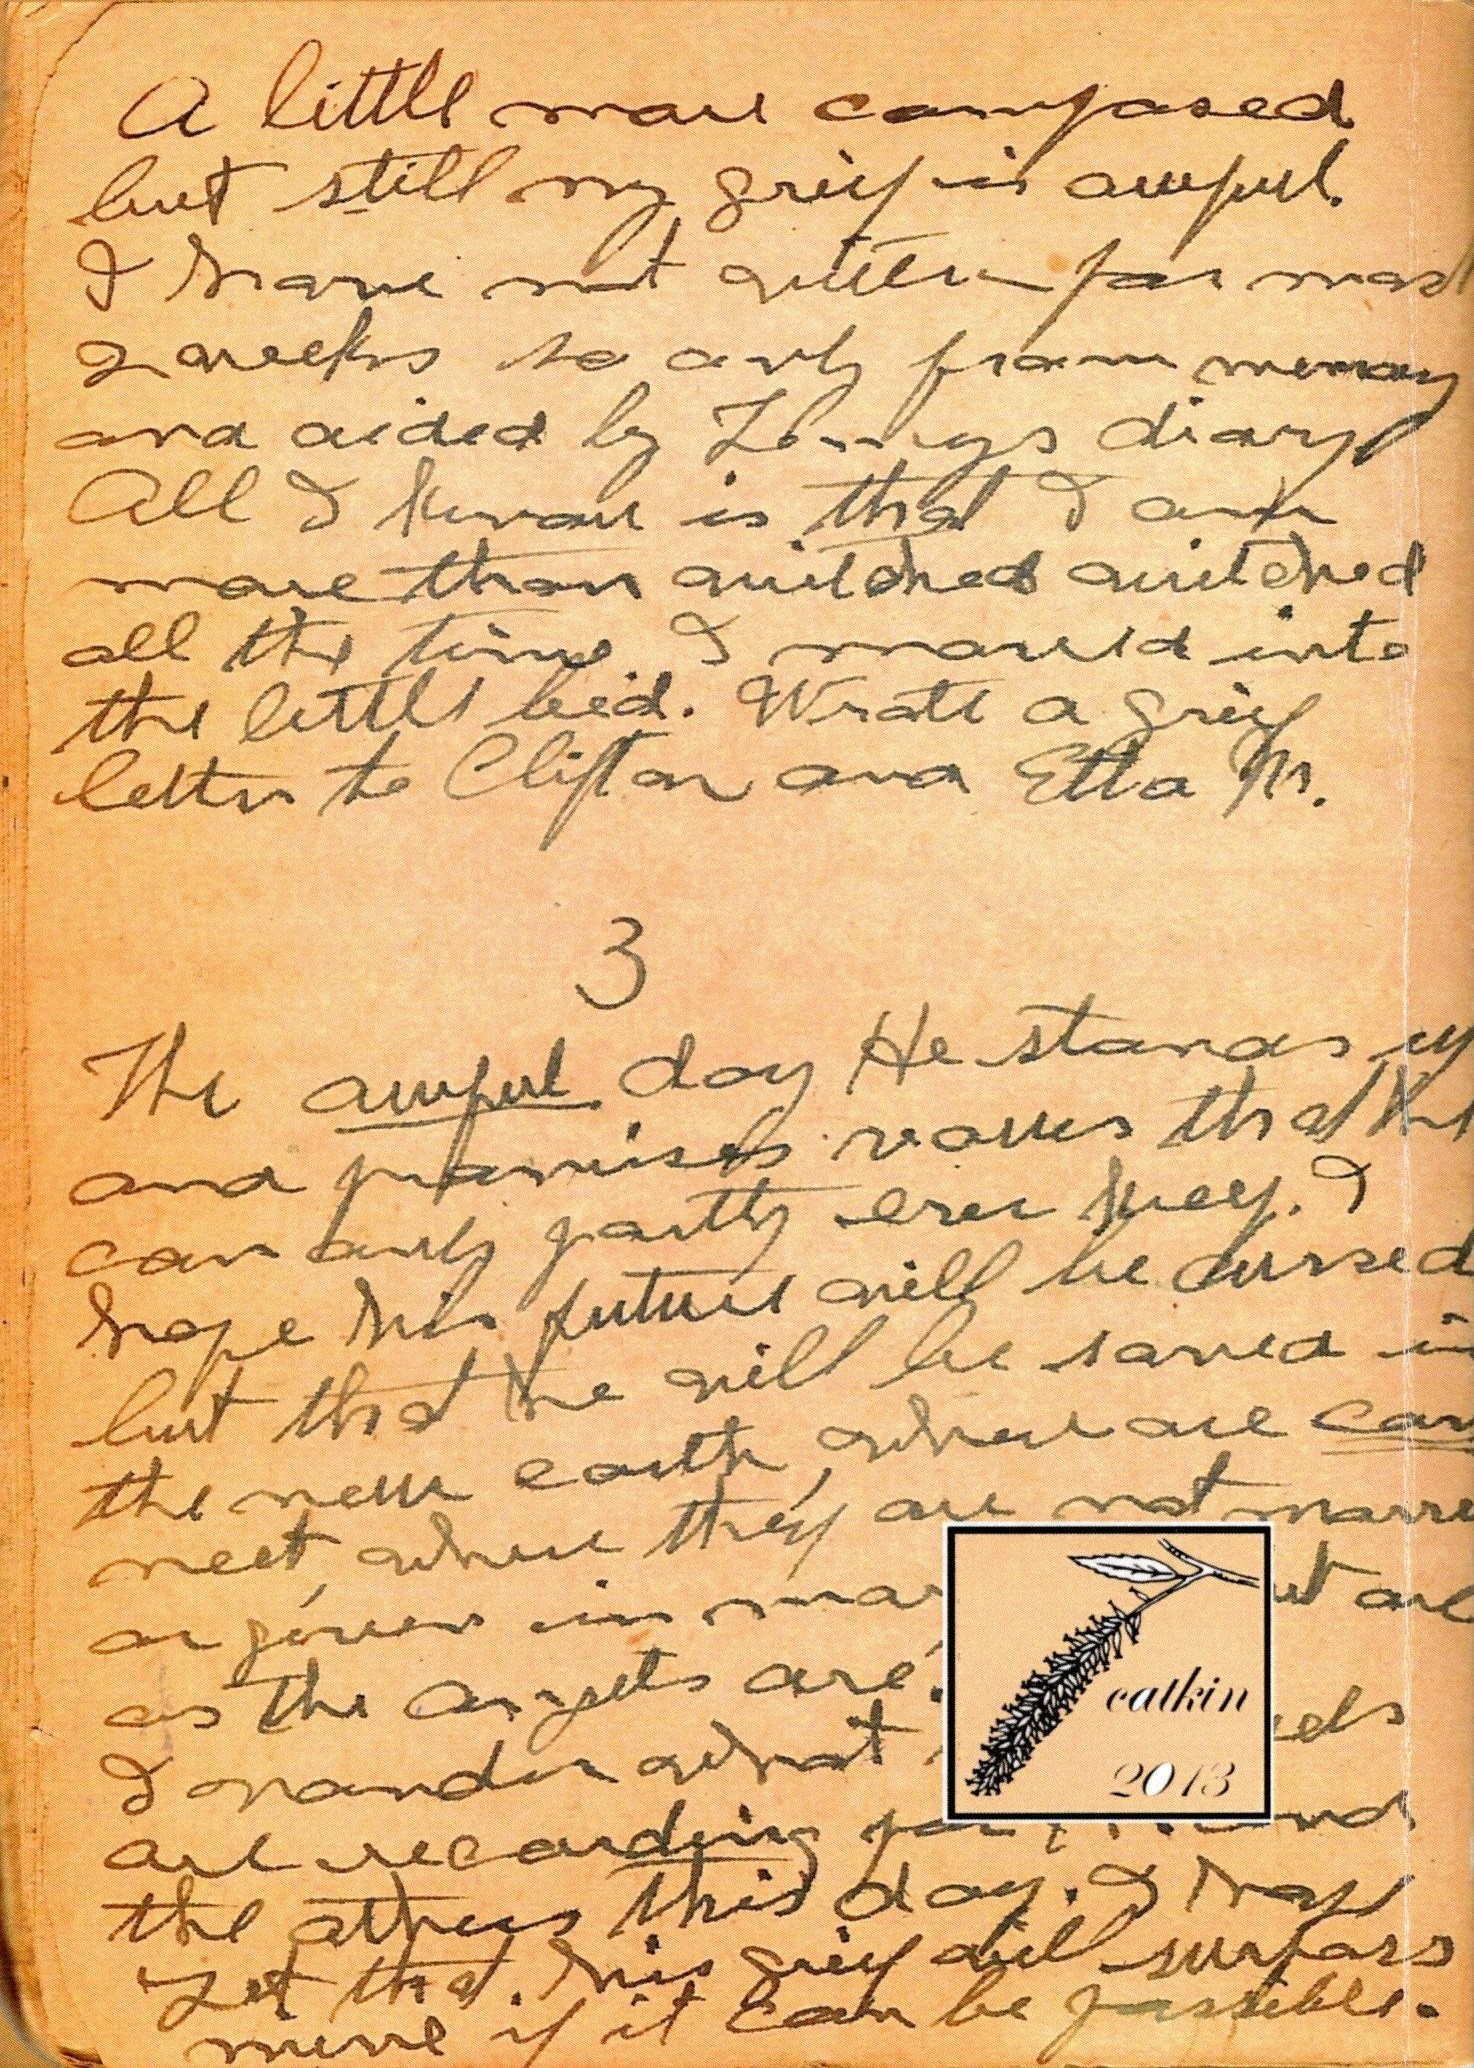 A little more composed
but still my grief is awful.
I have not written for most
2 weeks so only from memory
and aided by Tommys diary
All I know is that I am
more than wretched wretched
all the time. I moved into
the little bed. Wrote a grief
letter to Clifton and Etta M.
3
The awful day He stands up
and promises vows that he
can only partly ever keep. I
hope his future will be cursed
but that he will be saved in
the new earth, where we can
meet, where they are not marri
or given in mar ut are
as the angels are.
I wonder what els
are recording for and
the others this day. I hope
yet that his grief will surpass
mine if it can be possible.
catkin
2013